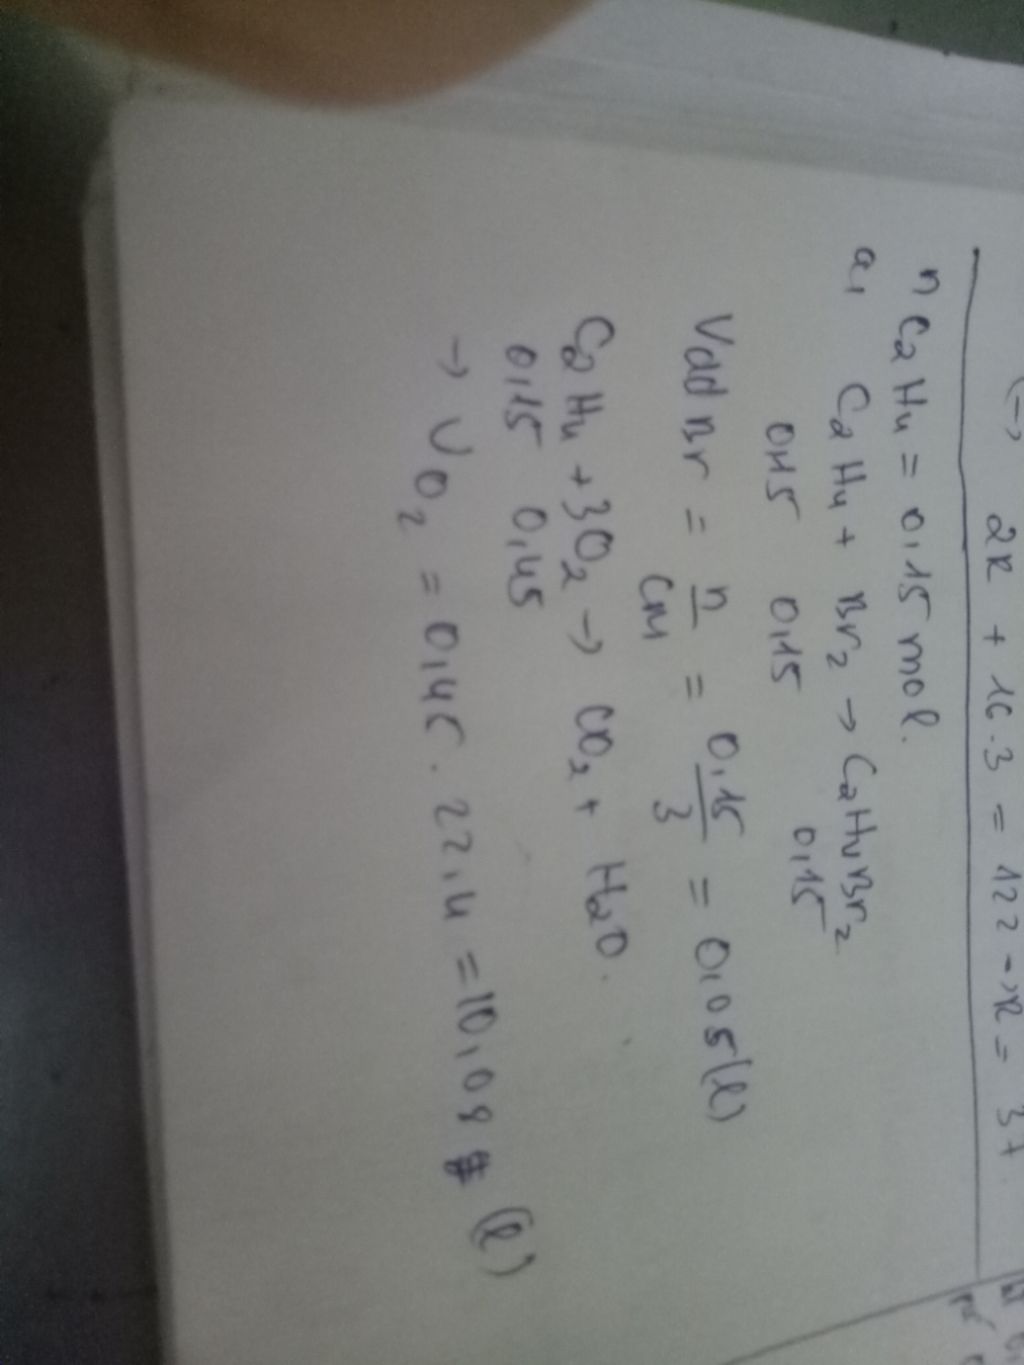 2R + 16.3 = 122 → R = 37
n C₂H₄ = 0,15 mol.
a, C₂H₄ + Br₂ → C₂H₄Br₂
0,15 0,15 0,15
Vdd Br = n/CM = 0,15/3 = 0,05(l)
C₂H₄ + 3O₂ → CO₂ + H₂O.
0,15 0,45
→ VO₂ = 0,45 . 22,4 = 10,08 (l)